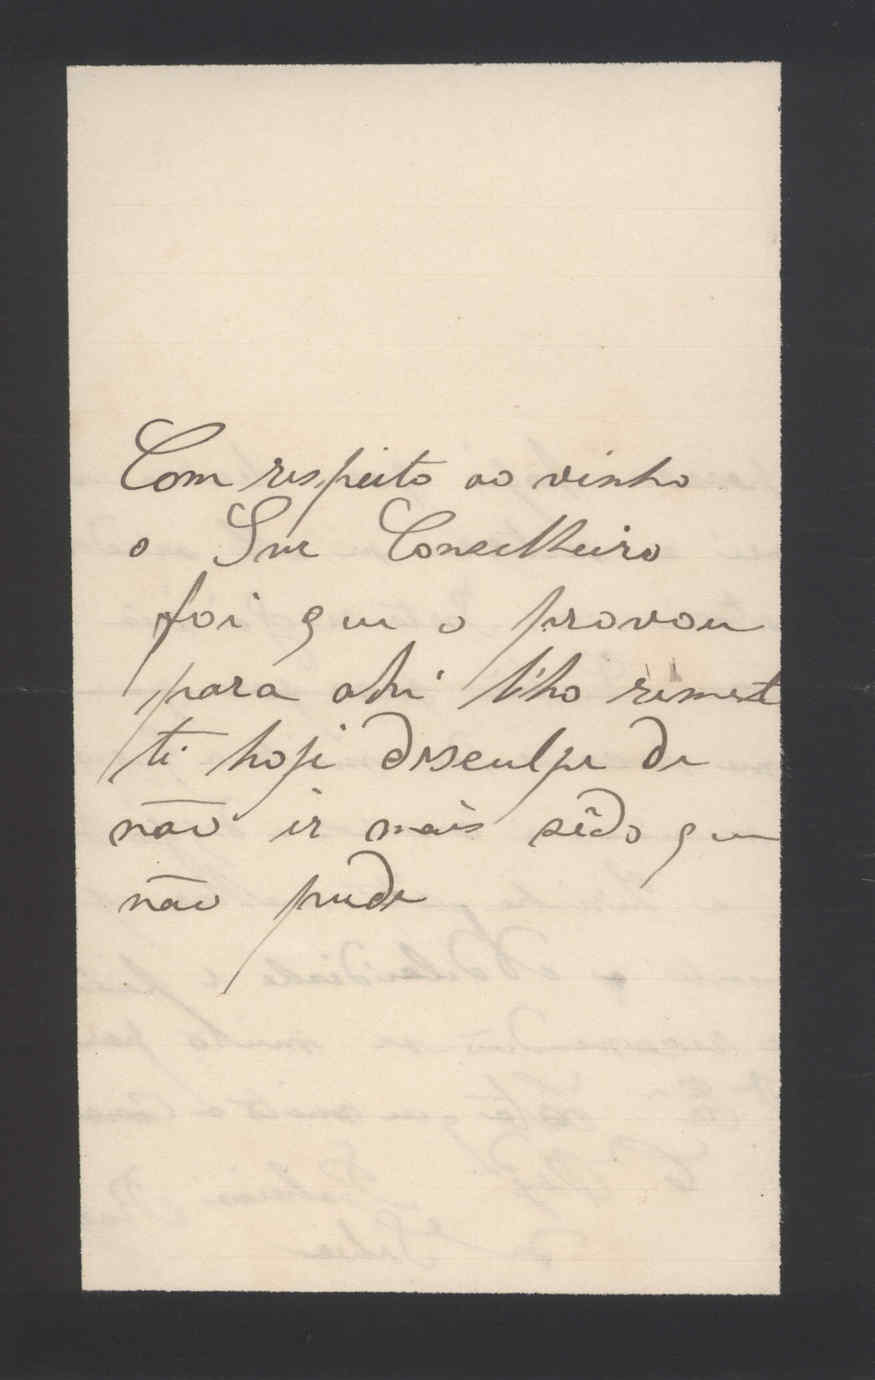 Com respeito ao vinho
o Snr Conselheiro
foi que o provou
para ahi lho remet
ti hoje desculpe de
não ir mais sêdo que
não pude